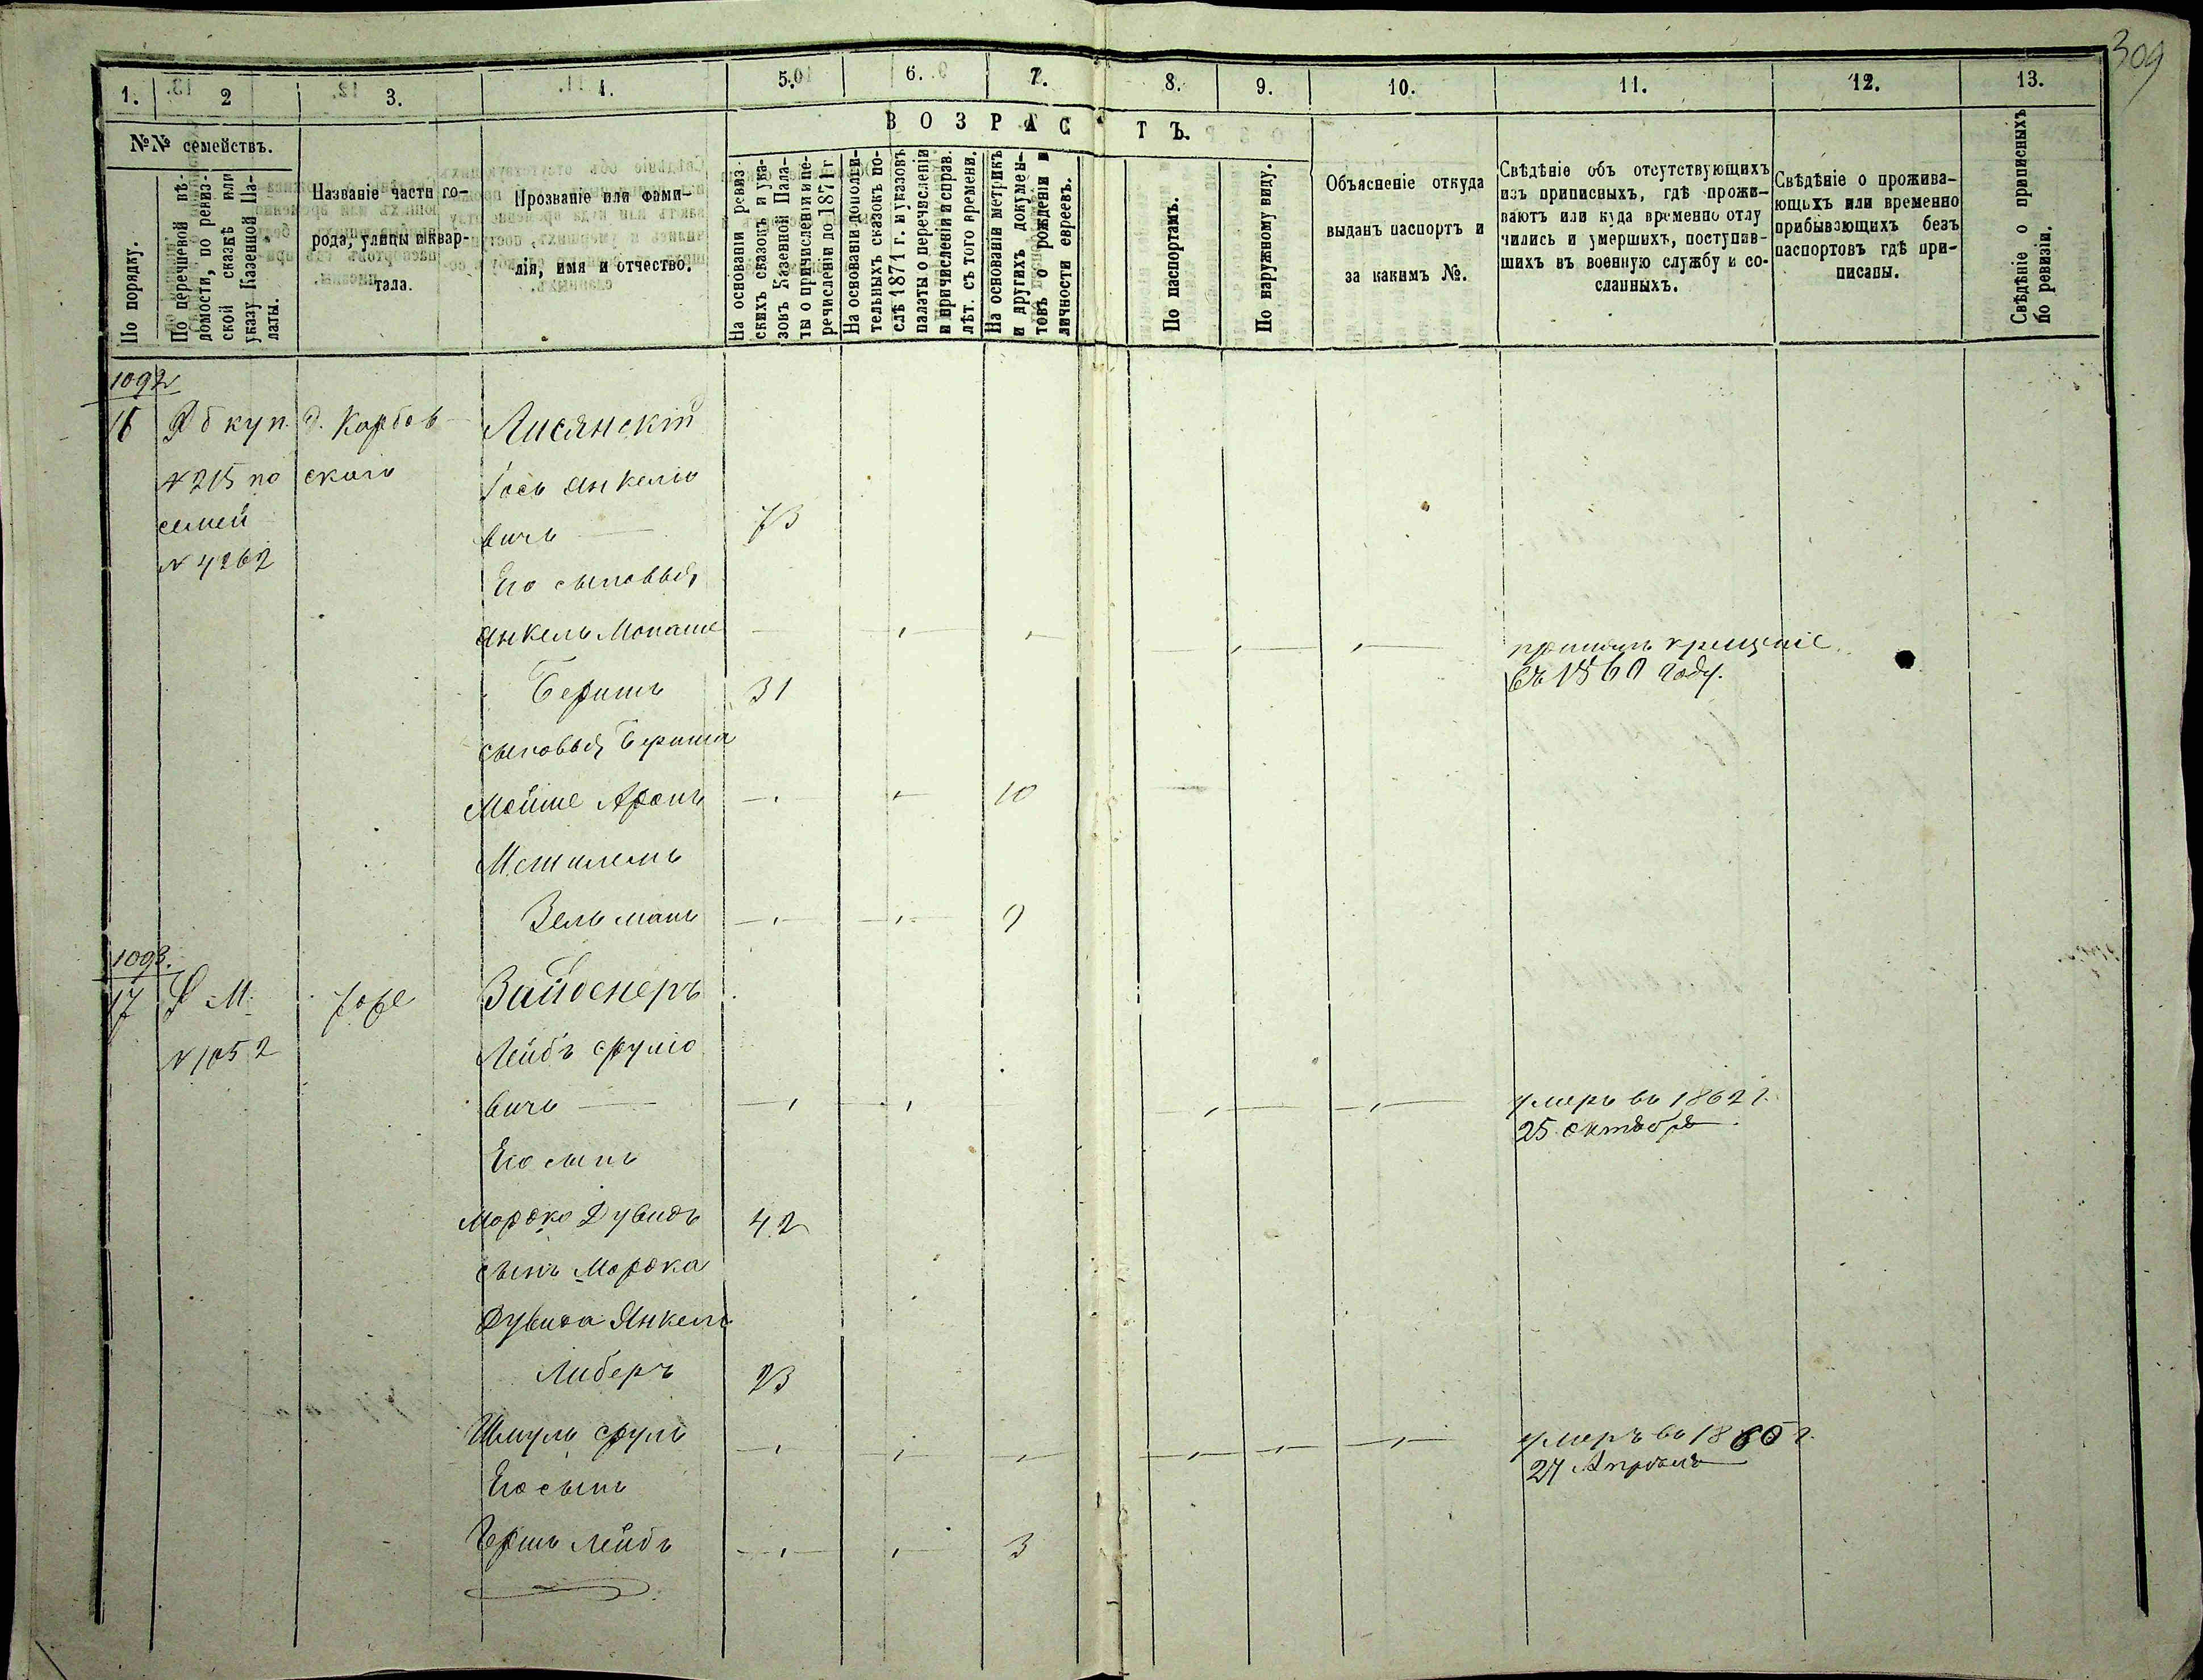 309
1. 2 3. 4. 5. 6. 7. 8. 9. 10. 11. 12. 13.
№№ семействъ.
По порядку.
По перечневой вѣ-
домости, по ревиз-
ской сказкѣ или
указу Казенной Па-
латы.
Названіе части го-
рода, улицы и квар-
тала.
Прозваніе или фами-
лія, имя и отчество.
ВОЗРАСТЪ.
На основаніи ревиз-
скихъ сказокъ и ука-
зовъ Казенной Пала-
ты о причисленіи и пе-
речисленіи до 1871 г.
На основаніи дополни-
тельныхъ сказокъ по-
слѣ 1871 г. и указовъ
палаты о перечисленіи
и причисленій и справ.
лѣт. съ того времени.
На основаніи метрикъ
и другихъ докумен-
товъ о рожденіи и
личности евреевъ.
По паспортамъ.
По наружному виду.
Объясненіе откуда
выданъ паспортъ и
за какимъ №.
Свѣдѣніе объ отсутствующихъ
изъ приписныхъ, гдѣ прожи-
ваютъ или куда временно отлу
чились и умершихъ, поступив-
шихъ въ военную службу и со-
сланныхъ.
Свѣдѣніе о прожива-
ющихъ или временно
прибывающихъ безъ
паспортовъ гдѣ при-
писаны.
Свѣдѣніе о приписныхъ
по ревизіи.
1092
16 куп. д. Карбов- Лисянскій
№ 215 по скаго Іось Янкелю
семей вичъ — 73
№ 4262
Его сыновья,
Янкель Монаше принялъ крещеніе
въ 1860 году.
Беришъ 31
сыновья Бериша
Мойше Аронъ 10
Мешилемъ
Зельманъ 9
1093.
17 М. тоже Зайденеръ
№ 1052 Лейбъ Срулю
вичъ — умеръ въ 1862 г.
25 октября
Его сынъ
Мордко Дувидъ 42
сынъ Мордка
Дувида Янкель
Либеръ 23
Шмуль Сруль умеръ въ 1860 г.
27 Апрѣля
Его сынъ
Гершъ Лейбъ 3